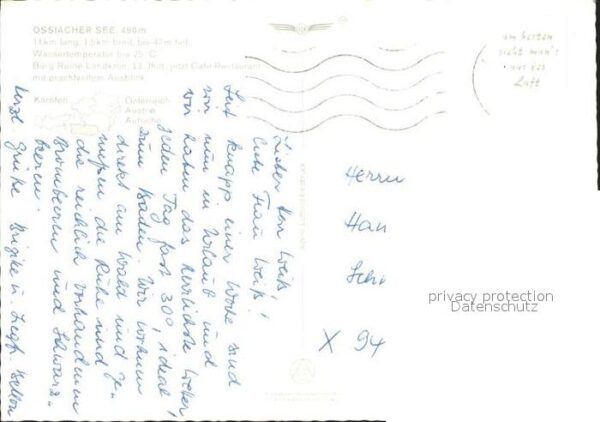 OSSIACHER SEE, 490 m
11 km lang, 1,5 km breit, bis 47 m tief,
Wassertemperatur bis 25° C.
Burg Ruine Landskron, 13. Jhdt., jetzt Café-Restaurant
mit prachtvollem Ausblick.
Kärnten
Österreich
Austria
Autriche
am besten
sieht man's
aus der
Luft
Lieber Herr Weiß,
liebe Frau Weiß!
Seit knapp einer Woche sind
wir nun in Urlaub und
wir haben das herrlichste Wetter,
jeden Tag fast 30°, ideal
zum Baden. Wir wohnen
direkt am Wald und ge-
nießen die Ruhe und
die reichlich vorhandenen
Brombeeren und Schwarz-
beeren.
Herzl. Grüße Brigitte
Herrn
Han
Schi
X 94
privacy protection
Datenschutz